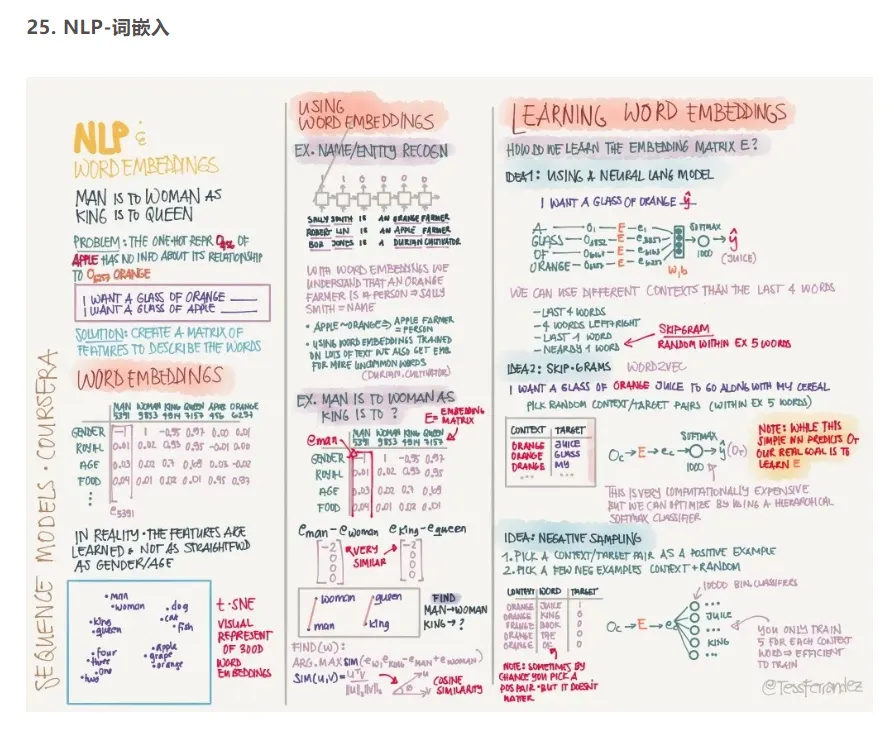 25. NLP-词嵌入
SEQUENCE MODELS • COURSERA
NLP &
WORD EMBEDDINGS
MAN IS TO WOMAN AS
KING IS TO QUEEN
PROBLEM: THE ONE-HOT REPR OF
APPLE HAS NO INFO ABOUT ITS RELATIONSHIP
TO O6257 ORANGE
I WANT A GLASS OF ORANGE ____
I WANT A GLASS OF APPLE ____
SOLUTION: CREATE A MATRIX OF
FEATURES TO DESCRIBE THE WORDS
WORD EMBEDDINGS
MAN WOMAN KING QUEEN APPLE ORANGE
5391 9853 4914 7157 456 6257
GENDER -1 1 -0.95 0.97 0.00 0.01
ROYAL 0.01 0.02 0.93 0.95
AGE 0.03 0.02 0.7 0.69 0.03 -0.02
FOOD 0.04 0.01 0.02 0.01 0.95 0.97
e5391
IN REALITY • THE FEATURES ARE
LEARNED & NOT AS STRAIGHTFWD
AS GENDER/AGE
man
woman
dog
cat
fish
king
queen
four
three
one
two
apple
grape
orange
t-SNE
VISUAL
REPRESENT
OF 300D
WORD
EMBEDDINGS
USING
WORD EMBEDDINGS
EX. NAME/ENTITY RECOGN
1 1 0 0 0 0
SALLY SMITH IS AN ORANGE FARMER
ROBERT LIN IS AN APPLE FARMER
BOB JONES IS A DURIAN CULTIVATOR
WITH WORD EMBEDDINGS WE
UNDERSTAND THAT AN ORANGE
FARMER IS A PERSON ⇒ SALLY
SMITH = NAME
• APPLE ~ ORANGE ⇒ APPLE FARMER
= PERSON
• USING WORD EMBEDDINGS TRAINED
ON LOTS OF TEXT WE ALSO GET EMB.
FOR MORE UNCOMMON WORDS
(DURIAN, CULTIVATOR)
EX. MAN IS TO WOMAN AS
KING IS TO ?
E= EMBEDDING
MATRIX
eman
MAN WOMAN KING QUEEN
5391 9853 4914 7157
GENDER -1 1 -0.95 0.97
ROYAL 0.01 0.02 0.93 0.95
AGE 0.03 0.02 0.7 0.69
FOOD 0.04 0.01 0.02 0.01
eman - ewoman eking - equeen
-2 0 0 0
VERY
SIMILAR
-2 0 0 0
woman queen
man king
FIND
MAN→WOMAN
KING→?
FIND(W):
ARG.MAX SIM(ew, eking - eman + ewoman)
SIM(U,V) = UᵀV / ||U||₂||V||₂
COSINE
SIMILARITY
LEARNING WORD EMBEDDINGS
HOW DO WE LEARN THE EMBEDDING MATRIX E?
IDEA1: USING A NEURAL LANG MODEL
I WANT A GLASS OF ORANGE ŷ
A O1 E e1
GLASS O3852 E e3852
OF E
ORANGE O6257 E e6257
W,b
SOFTMAX
1000
ŷ
(JUICE)
WE CAN USE DIFFERENT CONTEXTS THAN THE LAST 4 WORDS
- LAST 4 WORDS
- 4 WORDS LEFT+RIGHT
- LAST 1 WORD
- NEARBY 1 WORD
SKIPGRAM
RANDOM WITHIN EX 5 WORDS
IDEA2: SKIP-GRAMS WORD2VEC
I WANT A GLASS OF ORANGE JUICE TO GO ALONG WITH MY CEREAL
PICK RANDOM CONTEXT/TARGET PAIRS (WITHIN EX 5 WORDS)
CONTEXT TARGET
ORANGE JUICE
ORANGE GLASS
ORANGE MY
... ...
Oc→E→ec→
SOFTMAX
1000
ŷ(OT)
NOTE: WHILE THIS
SIMPLE NN PREDICTS OT
OUR REAL GOAL IS TO
LEARN E
THIS IS VERY COMPUTATIONALLY EXPENSIVE
BUT WE CAN OPTIMIZE BY USING A HIERARCHICAL
SOFTMAX CLASSIFIER
IDEA: NEGATIVE SAMPLING
1. PICK A CONTEXT/TARGET PAIR AS A POSITIVE EXAMPLE
2. PICK A FEW NEG EXAMPLES CONTEXT + RANDOM
CONTEXT WORD TARGET
ORANGE JUICE 1
ORANGE KING 0
ORANGE BOOK 0
ORANGE THE 0
ORANGE OF 0
NOTE: SOMETIMES BY
CHANCE YOU PICK A
POS PAIR - BUT IT DOESN'T
MATTER
Oc→E→ec
10000 BIN. CLASSIFIERS
...
JUICE
...
KING
...
YOU ONLY TRAIN
5 FOR EACH CONTEXT
WORD ⇒ EFFICIENT
TO TRAIN
@TessFerrandez